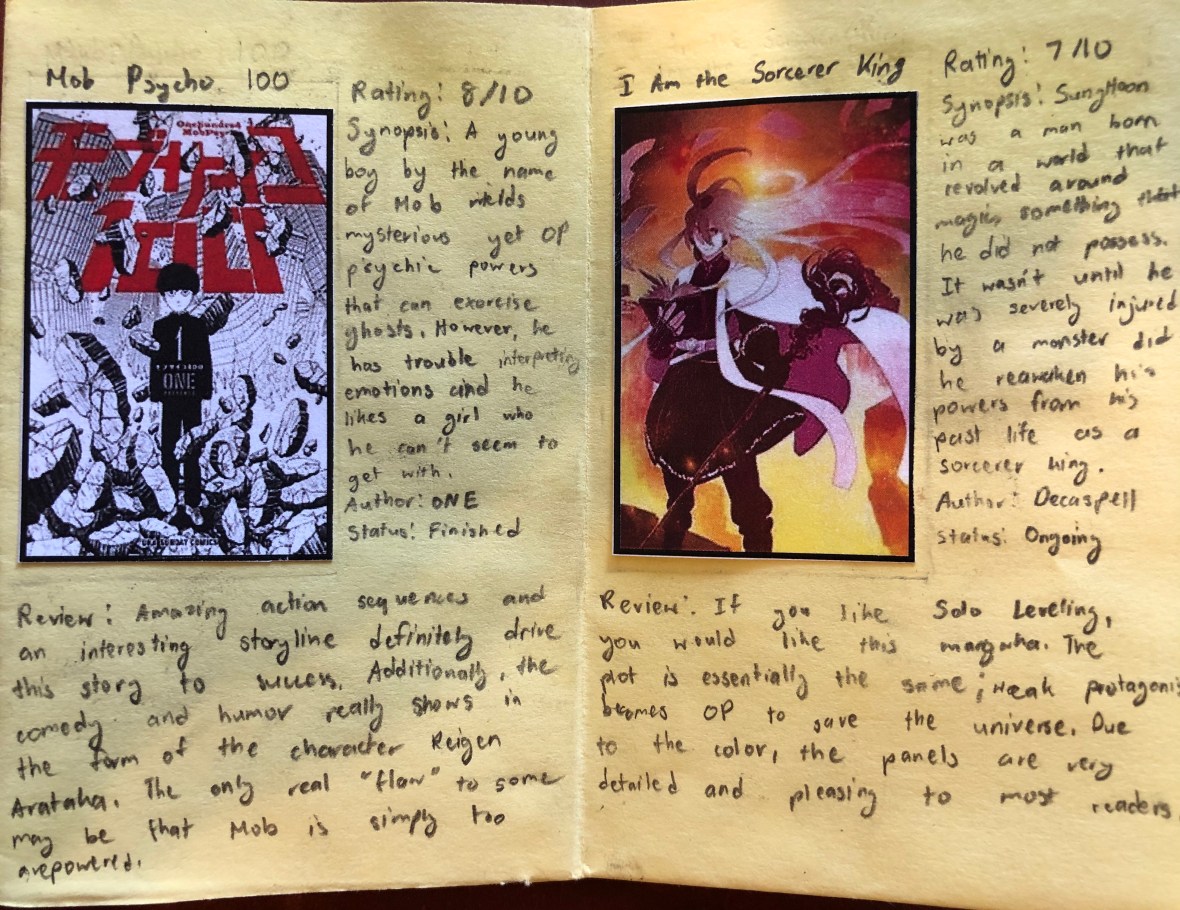 Mob Psycho 100
OneHundred
MobPsy
モブサイコ
100
モブサイコ100
ONE
URA SUNDAY COMICS
Rating: 8/10
Synopsis: A young
boy by the name
of Mob wields
mysterious yet OP
psychic powers
that can exorcise
ghosts. However, he
has trouble interpreting
emotions and he
likes a girl who
he can't seem to
get with.
Author: ONE
Status: Finished
Review: Amazing action sequences and
an interesting storyline definitely drive
this story to success. Additionally, the
comedy and humor really shows in
the form of the character Reigen
Arataka. The only real "flaw" to some
may be that Mob is simply too
ovepowered.
I Am the Sorcerer King
Rating: 7/10
Synopsis: SungHoon
was a man born
in a world that
revolved around
magic, something that
he did not possess.
It wasn't until he
was severely injured
by a monster did
he reawaken his
powers from his
past life as a
sorcerer king.
Author: Decaspell
Status: Ongoing
Review: If you like Solo Leveling,
you would like this mangwha. The
plot is essentially the same; weak protagonis
becomes OP to save the universe. Due
to the color, the panels are very
detailed and pleasing to most readers.